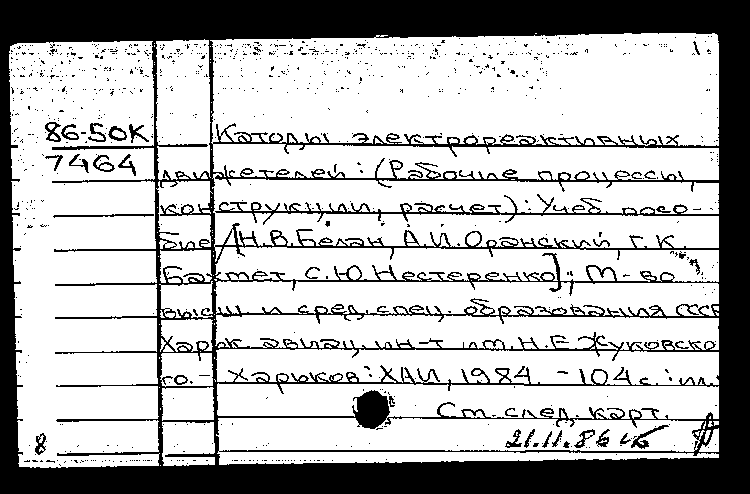 86-50К Катоды электрореактивных
7464 двигателей: (Рабочие процессы,
конструкции, расчет): Учеб. посо-
бие /[Н.В.Белан, А.И.Оранский, Г.К.
Бахмет, С.Ю.Нестеренко]; М-во
высш. и сред. спец. образования СССР
Харьк. авиац. ин-т им. Н.Е.Жуковско
го. - Харьков: ХАИ, 1984. - 104 с.: ил.
См. след. карт.
8 21.11.86